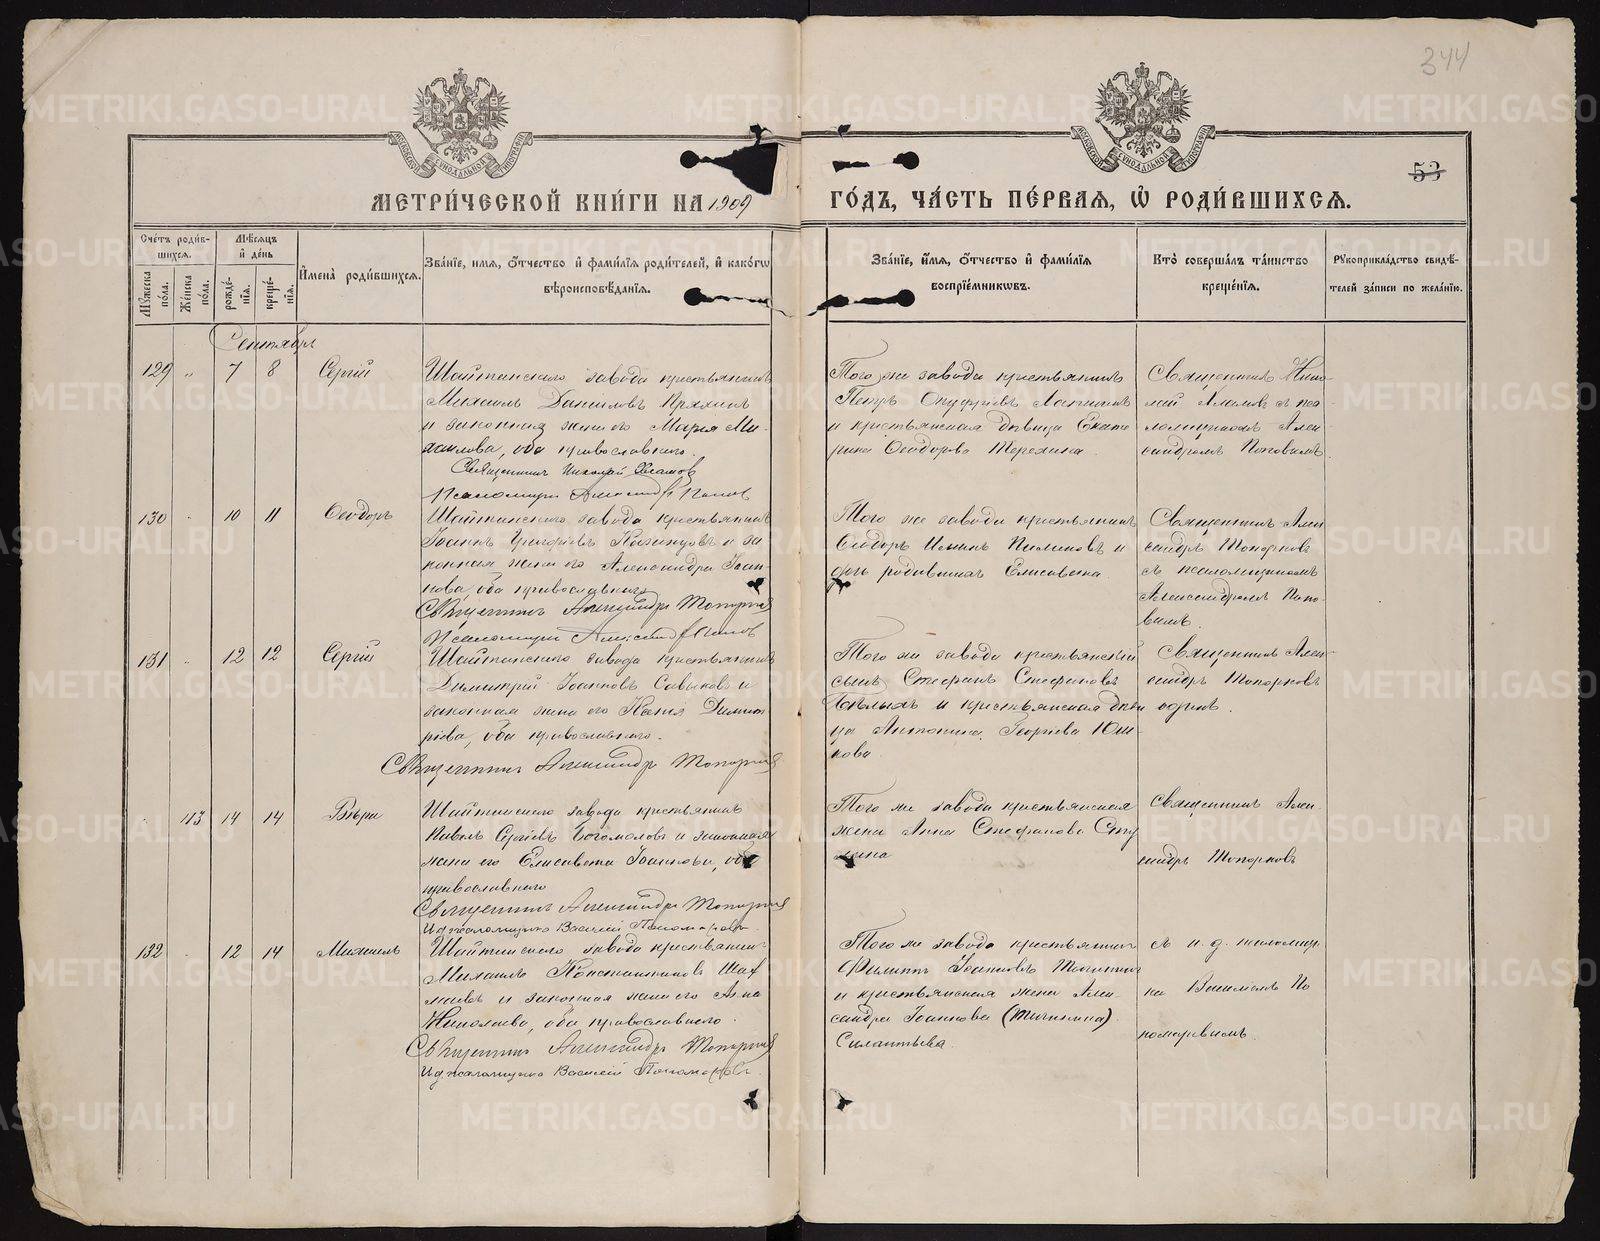 344
53
МОСКОВСКОЙ СѴНОДАЛЬНОЙ ТИПОГРАФІИ
МОСКОВСКОЙ СѴНОДАЛЬНОЙ ТИПОГРАФІИ
МЕТРИ́ЧЕСКОЙ КНИ́ГИ НА 1909 ГО́ДЪ, ЧА́СТЬ ПЕ́РВАЯ, Ѡ҆ РОДИ́ВШИХСЯ.
Сче́тъ роди́в-
шихся.
Мꙋ́жеска по́ла.
Же́нска по́ла.
Мѣ́сяцъ и҆ де́нь
рожде́-
нїя.
креще́-
нїя.
И҆мена̀ роди́вшихся.
Зва́нїе, и́мя, ѻ҆́тчество и҆ фами́лїя роди́телей, и҆ како́гѡ
вѣроисповѣ́данїя.
Зва́нїе, и҆́мя, ѻ҆́тчество и҆ фами́лїя
воспрїе́мникѡвъ.
Кто̀ соверша́лъ та́инство
креще́нїя.
Рꙋкоприкла́дство свидѣ́-
телей за́писи по жела́нїю.
Сентябрь
129 " 7 8 Сергій
Шайтанскаго завода крестьянинъ
Михаилъ Даниловъ Кряхинъ
и законная жена его Марія Ми-
хаилова, оба православнаго.
Священникъ Николай
Псаломщикъ Александръ Поповъ
Того же завода крестьянинъ
Петръ Онуфріевъ
и крестьянская дѣвица Екате
рина Ѳеодорова Терехина.
Священникъ Нико-
лай съ пса
ломщикомъ Алек-
сандромъ Поповымъ.
130 " 10 11 Ѳеодоръ
Шайтанскаго завода крестьянинъ
Іоаннъ Григоріевъ и за
конная жена его Александра Іоан-
нова, оба православнаго
Священникъ Александръ Топорковъ
Псаломщикъ Александръ Поповъ
Того же завода крестьянинъ
Ѳеодоръ и
дочь Елисавета.
Священникъ Алек
сандръ Топорковъ
съ псаломщикомъ
Александромъ Попо-
вымъ.
131 " 12 12 Сергій
Шайтанскаго завода крестьянинъ
Димитрій Іоанновъ и
законная жена его Ксенія Димит
ріева, оба православнаго.
Священникъ Александръ Топорковъ
Того же завода крестьянскій
сынъ Стефанъ Стефановъ
Бѣлыхъ и крестьянская дѣви
ца Антонина Георгіева Юш-
кова.
Священникъ Алек-
сандръ Топорковъ
одинъ.
113 14 14 Вѣра
Шайтанскаго завода крестьянинъ
Павелъ Сергіевъ Богомоловъ и законная
жена его Елисавета Іоаннова, оба
православнаго
Священникъ Александръ Топорковъ
И д псаломщика Василій Пономаревъ.
Того же завода крестьянская
жена Анна Стефанова
Священникъ Алек-
сандръ Топорковъ
132 " 12 14 Михаилъ
Шайтанскаго завода крестьянин-
Михаилъ Константиновъ
и законная жена его Анна
Николаева, оба православнаго.
Священникъ Александръ Топорковъ
И д псаломщика Василій Пономаревъ.
Того же завода крестьянин
Филиппъ Іоанновъ
и крестьянская жена Алек-
сандра Іоаннова
Силантьева.
съ и. д. псаломщи
ка Василіемъ По
номаревымъ.
METRIKI.GASO-URAL.RU